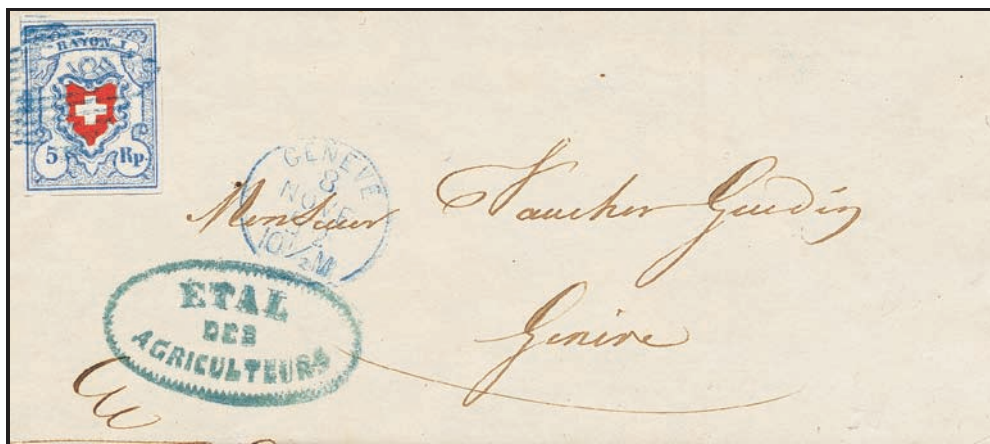 RAYON I.
5 Rp.
GENEVE
8
NOVE
10½M
Monsieur Vaucher Guédin
Genève
ÉTAL
DES
AGRICULTEURS